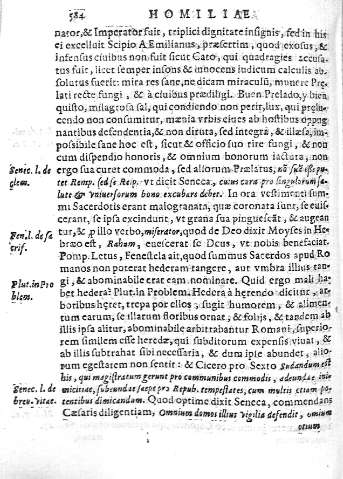 584
HOMILIAE
nator, & Imperator fuit, triplici dignitate insignis, sed in his
ei excelluit Scipio AEmilianus, præsertim, quod exosus, &
infensus ciuibus non fuit sicut Cato, qui quadragies accu-
satus fuit, licet semper insons & innocens iudicum calculis ab-
solutus fuerit: mira res sane, ne dicam miraculū, munere Præ-
lati recte fungi, & à ciuibus prædiligi. Buen Prelado, y bien
quisto, milagrosa sal, qui condiendo non perit, lux, qui prælu-
cendo non consumitur, mænia vrbis eius ab hostibus oppug-
nantibus defendentia, & non diruta, sed integra, & illæsa, im-
possibile sane hoc est, sicut & officio suo rite fungi, & non
cum dispendio honoris, & omnium bonorum iactura, non
Senec. l. de
clem.
ergo sua curet commoda, sed aliorum Prælatus,
tet Remp. sed se Reip. vt dicit Seneca, cuius cara pro singulorum sa-
lute & vniuersorum bono excubare debet. In ora vestimenti sum-
mi Sacerdotis erant malogranata, quæ coronata sunt, se eui-
scerant, se ipsa excindunt, vt grana sua pinguescāt, & augean
Pen. l. de sa
crif.
tur, & p illo verbo, miserator, quod de Deo dixit Moyses in He-
bræo est, Raham, euiscerat se Deus, vt nobis benefaciat.
Pomp. Letus, Fenestela ait, quod summus Sacerdos apud Ro
manos non poterat hederam tangere, aut vmbra illius tan-
Plut. in Pro
blem.
gi, & abominabile erat eam nominare. Quid ergo mali ha-
bet hedera? Plut. in Problem. Hedera à herendo dicitur, ar-
boribus heret, trepa por ellos, sugit humorem, & alimen-
tum earum, se illarum floribus ornat, & folijs, & tandem ab
illis ipsa alitur, abominabile arbitrabantur Romani, superio-
rem similem esse heredæ, qui subditorum expensis viuat, &
ab illis subtrahat sibi necessaria, & dum ipse abundet, alio-
rum egestatem non sentit: & Cicero pro Sexto Sudandum est
his, qui magistratum gerunt pro communibus commodis, adeundae ini-
Senec. l. de
breu. vitae.
micitiae, subeundae saepe pro Repub. tempestates, cum multis etiam po-
tentibus dimicandum. Quod optime dixit Seneca, commendans
Cæsaris diligentiam, Omnium domos illius vigilia defendit, omium
otium